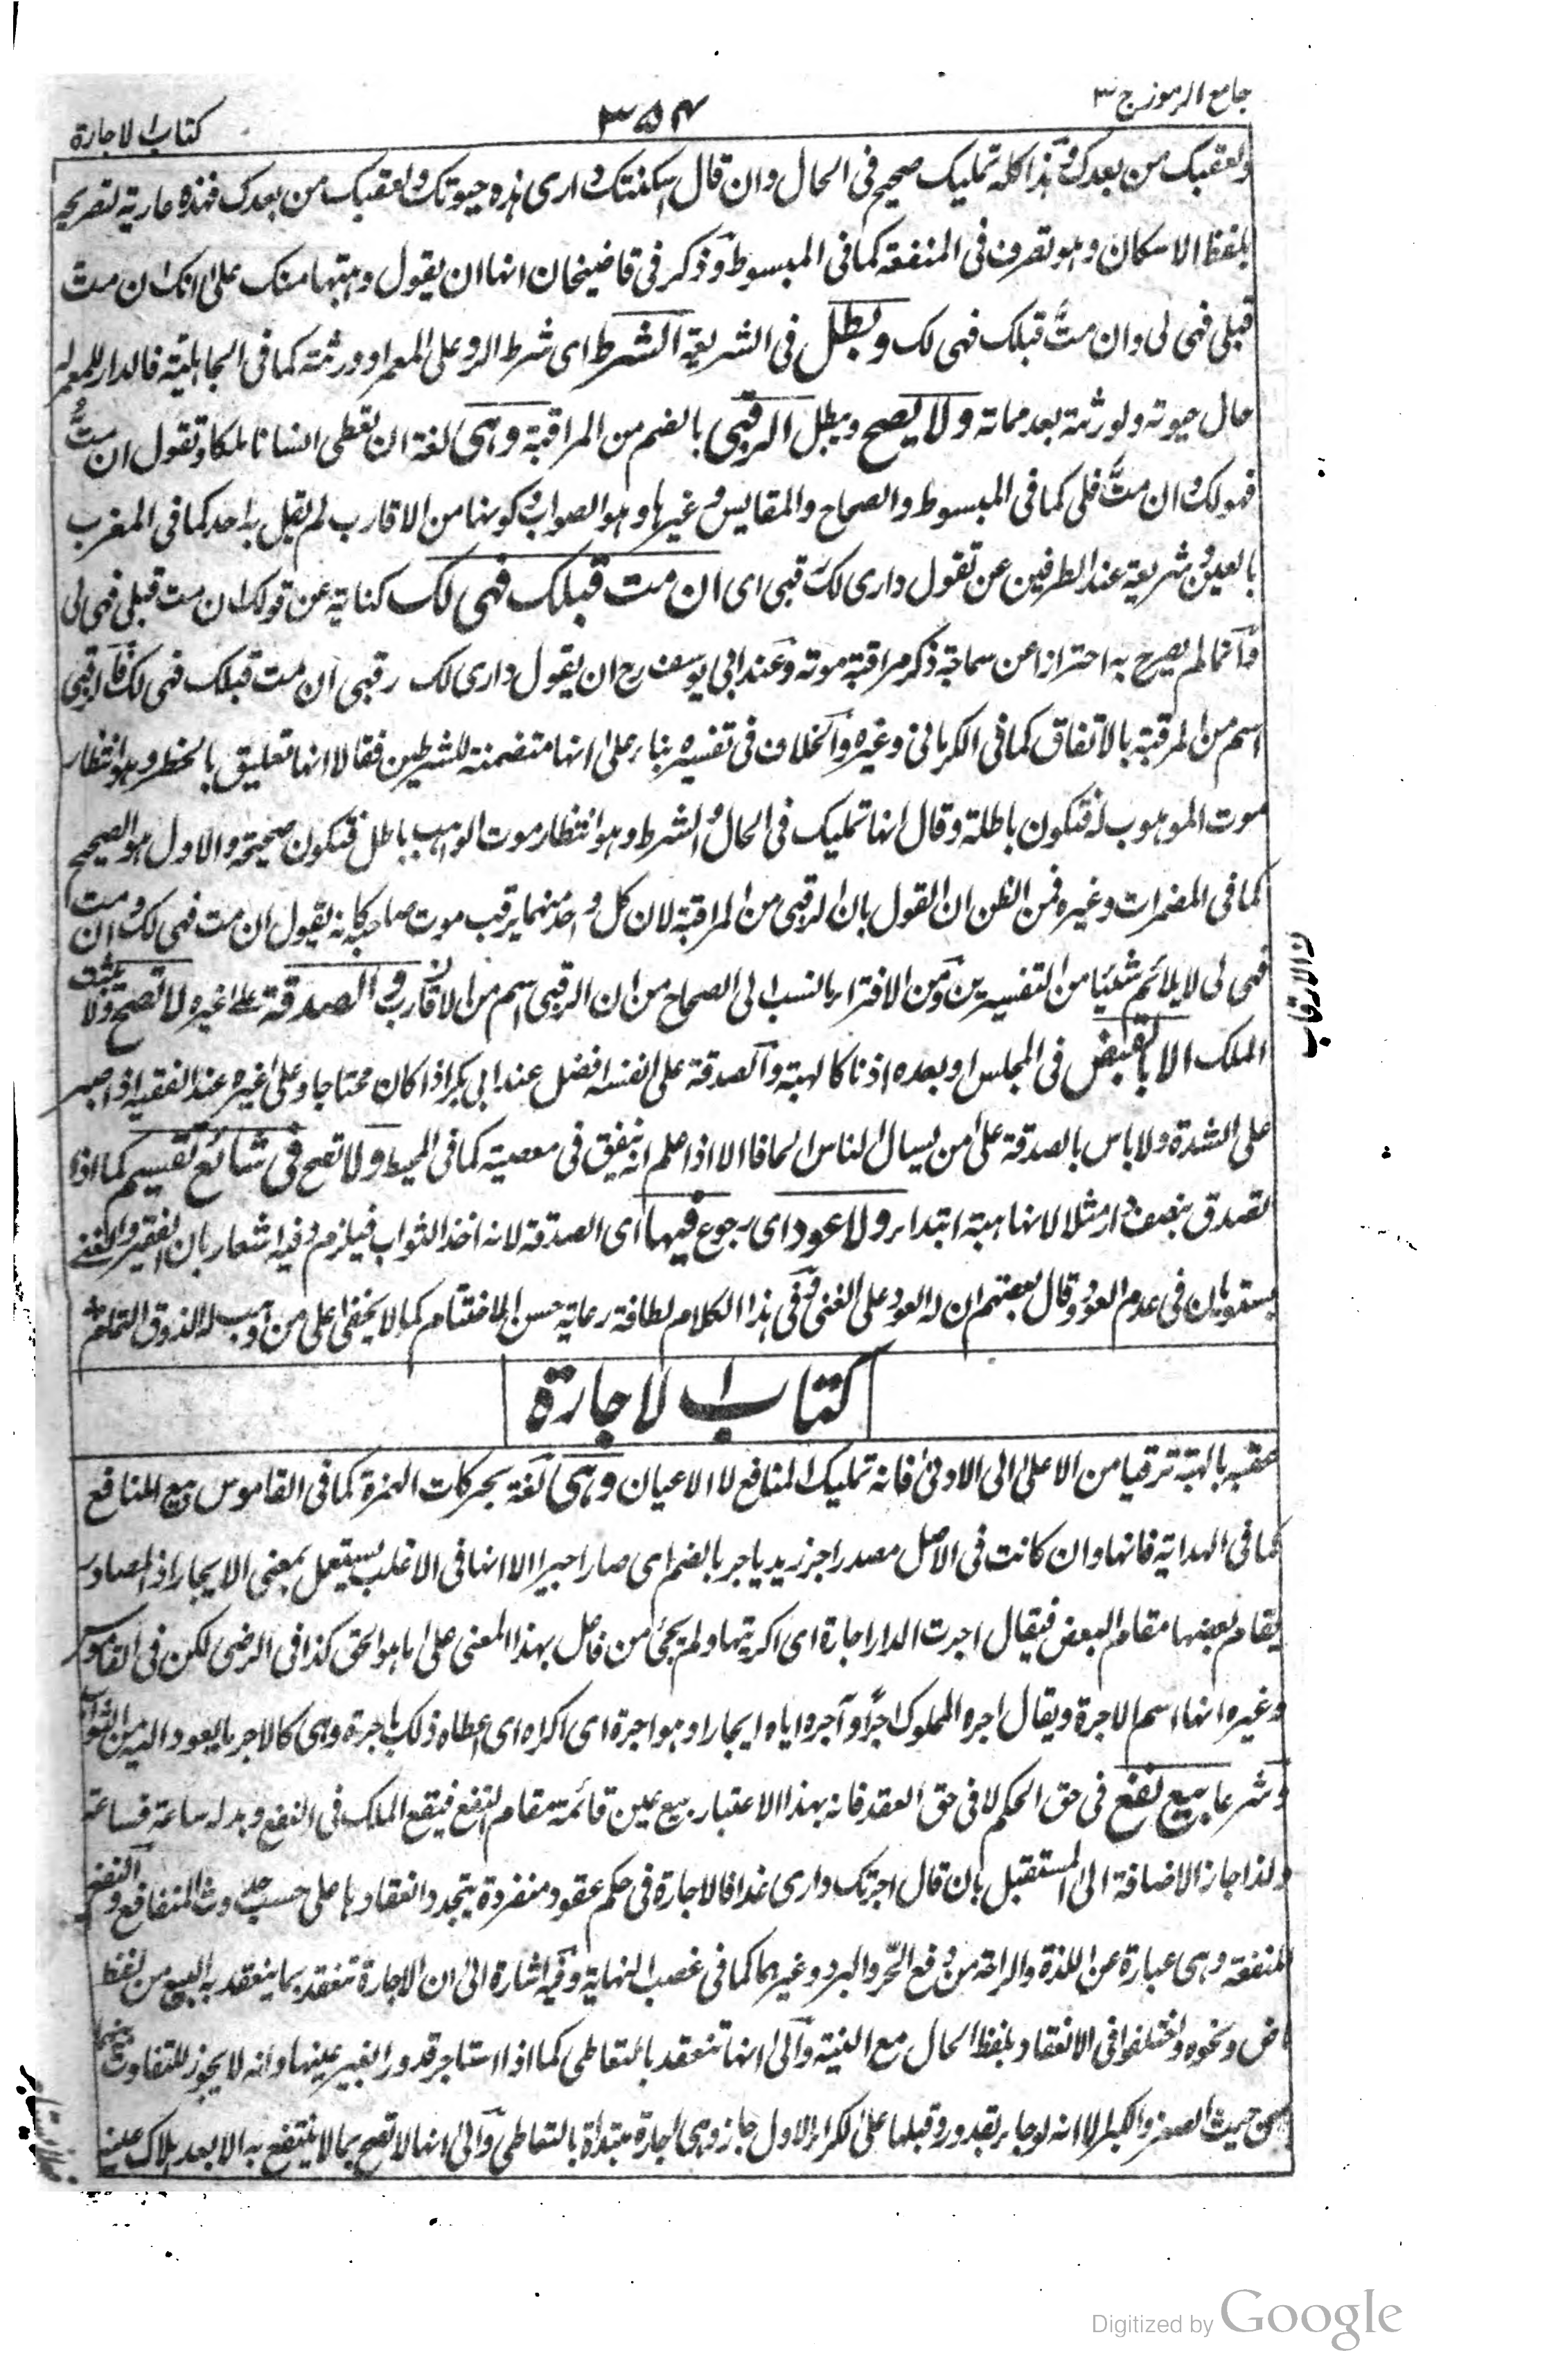 جامع الرموز ج ٣
٣٥٤
كتاب الاجارة
ولعقبك من بعدك وهذا كله تمليك صحيح فى الحال وان قال اسكنتك دارى هذه حيوتك ولعقبك من بعدك فهذه عارية لتصريحه
بلفظ الاسكان وهو تصرف فى المنفعة كما فى المبسوط وذكر فى قاضيخان انها ان يقول وهبتها منك على انك ان مت
قبلى فهى لى وان مت قبلك فهى لك ويبطل فى الشريعة الشرط اى شرط الرد على المعمر او ورثته كما فى الجاهلية فالدار للمعمر له
حال حيوته ولورثته بعد مماته ولا يصح ويبطل الرقبى بالضم من المراقبة وهى لغة ان تعطى انسانا ملكا وتقول ان متُّ
فهو لك وان متَّ فلى كما فى المبسوط والصحاح والمقايس وغيرها وهو الصواب وكونها من الاقارب لم يقل به احد كما فى المغرب
بالعين وشريعة عند الطرفين عن تقول دارى لك رقبى اى ان مت قبلك فهى لك كناية عن قولك ان مت قبلى فهى لى
وانما لم يصرح به احترازا عن سماجة ذكر مراقبة موته وعند ابى يوسف رح ان يقول دارى لك رقبى ان مت قبلك فهى لك فالرقبى
اسم من المرقبة بالاتفاق كما فى الكرمانى وغيره والخلاف فى تفسيره بناء على انها متضمنة للشرطين فقالا انها تعليق بالخطر وهو انتظار
موت الموهوب له فتكون باطلة وقال انها تمليك فى الحال والشرط وهو انتظار موت الواهب باطل فتكون صحيحة والاول هو الصحيح
كما فى المضمرات وغيره فمن الظن ان القول بان الرقبى من المراقبة لان كل واحد منهما يرقب موت صاحبه كانه يقول ان مت فهى لك وان مت
فهى لى لا يلائم شيئا من التفسيرين ومن الافتراء بالنسب الى الصحاح من ان الرقبى اسم من الاقارب والصدقة على غيره لا تصح ولا يثبت
ن الارقاب
الملك الا بالقبض فى المجلس او بعده اذنا كالهبة والصدقة على نفسه افضل عند ابى بكر اذا كان محتاجا وعلى غيره عند الفقيه اذا صبر
على الشدة ولا باس بالصدقة على من يسال الناس الحافا الا اذا علم انه ينفق فى معصية كما فى المحيط ولا تصح فى شائع تقسيم كما اذا
تصدق بنصف دار مثلا لانها هبة ابتداء ولا عود اى رجوع فيها اى الصدقة لانه اخذ الثواب فيلزم وفيه اشعار بان الفقير والغنى
يستويان فى عدم العود وقال بعضهم ان له العود على الغنى وفى هذا الكلام لطافة رعاية حسن الاختتام كما لا يخفى على من وهب له الذوق التام
كتاب الاجارة
عقبه بالهبة ترقيا من الاعلى الى الادنى فانه تمليك المنافع لا الاعيان وهى لغة بحركات الهمزة كما فى القاموس بيع المنافع
كما فى الهداية فانها وان كانت فى الاصل مصدر اجر زيد ياجر بالضم اى صار اجيرا الا انها فى الاغلب يستعمل بمعنى الايجار اذ المصادر
يقام بعضها مقام البعض فيقال اجرت الدار اجارة اى اكريتها ولم يجئ من فاعل بهذا المعنى على ما هو الحق كذا فى الرضى لكن فى القاموس
وغيره انها اسم الاجرة ويقال اجره المملوك اجرًا وآجره اياه ايجارا ومواجرة اى اكراه اى اعطاه ذلك باجرة وهى كالاجر ما يعود اليه من الثواب
وشرعا بيع نفع فى حق الحكم لا فى حق العقد فانه بهذا الاعتبار بيع عين قائمة مقام النفع فيقع الملك فى النفع وبدله ساعة فساعة
ولذا جاز الاضافة الى المستقبل بان قال اجرتك دارى غدا فالاجارة فى حكم عقود منفردة يتجدد انعقادها على حسب حدوث المنافع والنفع
المنفعة وهى عبارة عن اللذة والراحة من دفع الحر والبرد وغيرهما كما فى غصب النهاية وفيه اشارة الى ان الاجارة تنعقد بما ينعقد به البيع من لفظ
ماض ونحوه واختلفوا فى الانعقاد بلفظ الحال مع النية والى انها تنعقد بالتعاطى كما اذا استاجر قدورا بغير عينها وانه لا يجوز للتفاوت بينهما
من حيث الصغر والكبر الا انه لو جاء بقدور وقبلها على الكراء الاول جاز وهى اجارة مبتداة بالتعاطى والى انها لا تصح بما لا ينتفع به الا بعد هلاك عينه
Digitized by Google